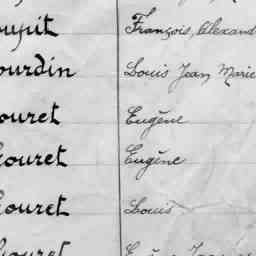 oupit François, Alexand
ourdin Louis Jean Marie
ouret Eugène
ouret Eugène
ouret Louis
ouret